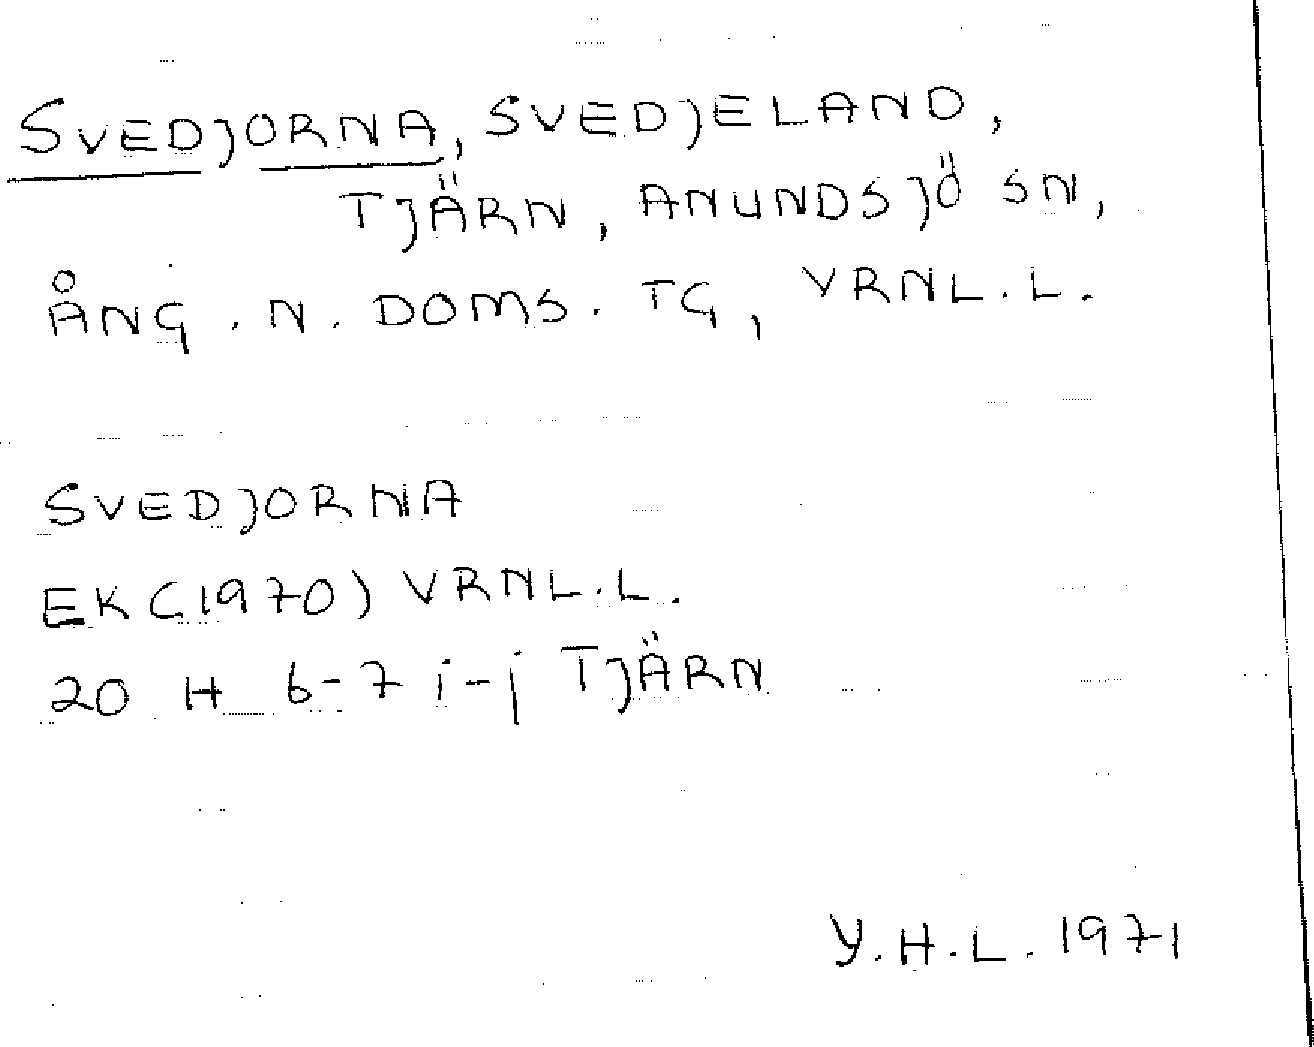 SVEDJORNA, SVEDJELAND,
TJÄRN, ANUNDSJÖ SN,
ÅNG. N. DOMS. TG, VRNL.L.
SVEDJORNA
EK (1970) VRNL.L.
20 H 6-7 i-j TJÄRN
Y.H.L. 1971